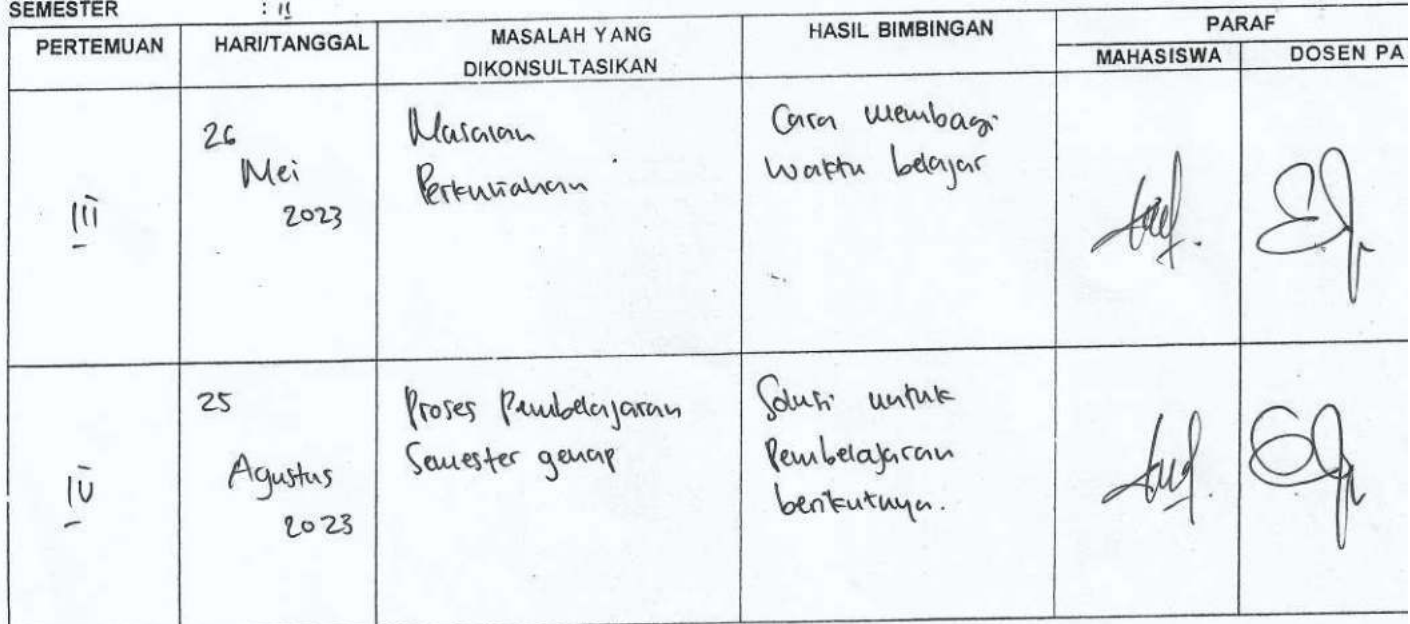 SEMESTER : II
PERTEMUAN HARI/TANGGAL MASALAH YANG DIKONSULTASIKAN HASIL BIMBINGAN PARAF
MAHASISWA DOSEN PA
III
26
Mei
2023
Masalah
Perkuliahan
Cara membagi
waktu belajar
IV
25
Agustus
2023
Proses Pembelajaran
Semester genap
Solusi untuk
Pembelajaran
berikutnya.